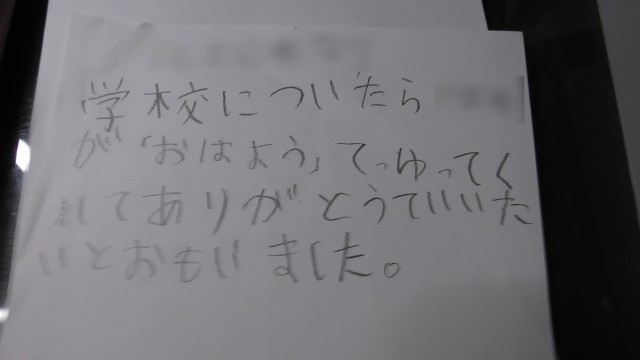 学校についたら
が「おはよう」てっゆってく
してありがとうていいた
いとおもいました。